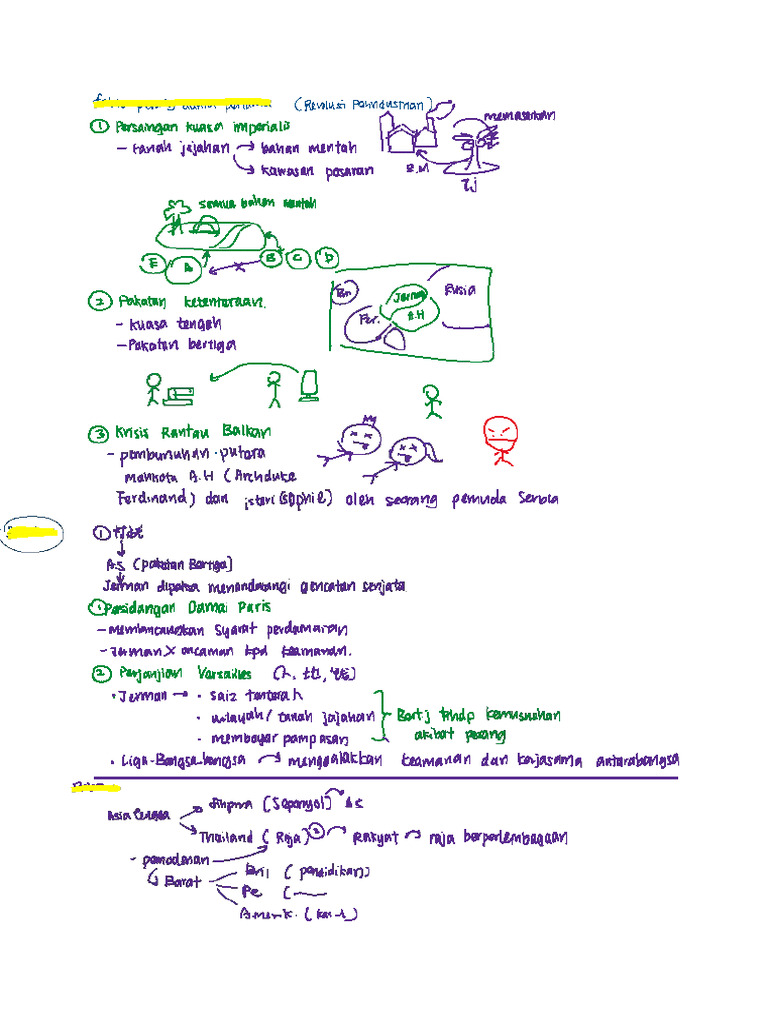 (Revolusi Perindustrian)
① Persaingan kuasa imperialis
- tanah jajahan → bahan mentah
↘ kawasan pasaran
memasarkan
B.M
TJ
semua bahan mentah
E A B C D
② Pakatan ketenteraan.
- kuasa tengah
- Pakatan bertiga
Jerman
A.H
Rusia
Per.
③ Krisis Rantau Balkan
- pembunuhan putera
mahkota A.H (Archduke
Ferdinand) dan isteri (Sophie) oleh seorang pemuda Serbia
①
A.S (Pakatan Bertiga)
Jerman dipaksa menandatangi gencatan senjata
① Persidangan Damai Paris
- membincangkan syarat perdamaian
- Jerman X ancaman kpd keamanan.
② Perjanjian Versailles (人, 地, 钱)
• Jerman → • saiz tentera
• wilayah/tanah jajahan
• membayar pampasan
Bert/j trhdp kemusnahan
akibat perang
• Liga Bangsa-bangsa → menggalakkan keamanan dan kerjasama antarabangsa
Asia Tenggara
Filipina (Sepanyol) → AS
Thailand (Raja) ② → Rakyat → raja berperlembagaan
- pemodenan
↳ Barat
Bri (pendidikan)
Pe (
Amerik. (